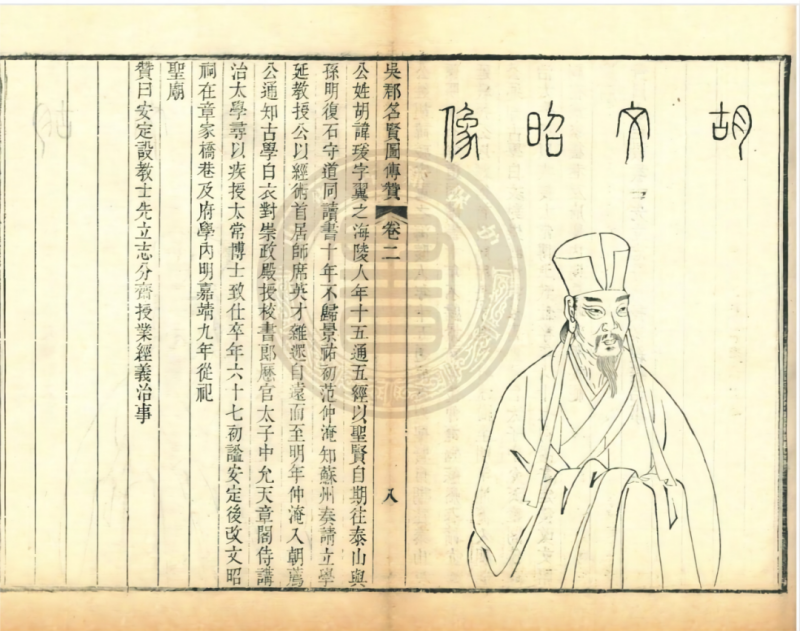 胡文昭像
吳郡名賢圖傳贊 卷二 八
公姓胡諱瑗字翼之海陵人年十五通五經以聖賢自期往泰山與
孫明復石守道同讀書十年不歸景祐初范仲淹知蘇州奏請立學
延教授公以經術首居師席英才雜遝自遠而至明年仲淹入朝薦
公通知古學白衣對崇政殿授校書郎歷官太子中允天章閣侍講
治太學尋以疾授太常博士致仕卒年六十七初諡安定後改文昭
祠在章家橋巷及府學內明嘉靖九年從祀
聖廟
贊曰安定設教士先立志分齊授業經義治事